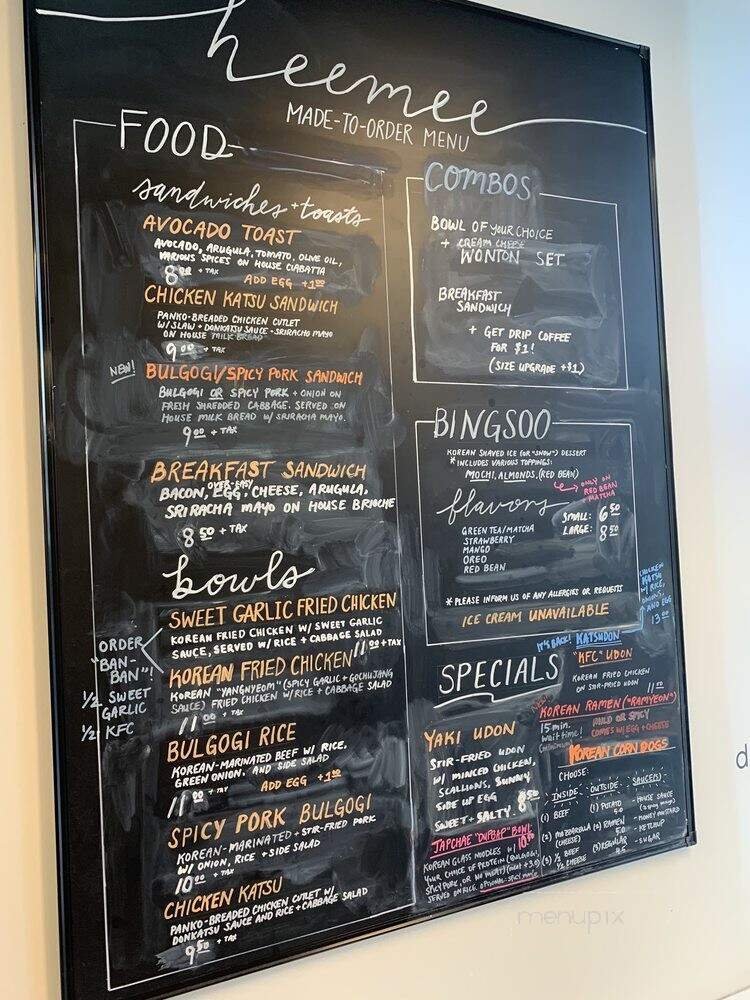 heemee
MADE-TO-ORDER MENU
FOOD
sandwiches + toasts
AVOCADO TOAST
AVOCADO, ARUGULA, TOMATO, OLIVE OIL,
VARIOUS SPICES ON HOUSE CIABATTA
8.00 + TAX ADD EGG +1.00
CHICKEN KATSU SANDWICH
PANKO-BREADED CHICKEN CUTLET
W/ SLAW + DONKATSU SAUCE + SRIRACHA MAYO
ON HOUSE MILK BREAD
9.00 + TAX
NEW! BULGOGI/SPICY PORK SANDWICH
BULGOGI OR SPICY PORK + ONION ON
FRESH SHREDDED CABBAGE. SERVED ON
HOUSE MILK BREAD W/ SRIRACHA MAYO.
9.00 + TAX
BREAKFAST SANDWICH
OVER-EASY
BACON, EGG, CHEESE, ARUGULA,
SRIRACHA MAYO ON HOUSE BRIOCHE
8.50 + TAX
bowls
SWEET GARLIC FRIED CHICKEN
KOREAN FRIED CHICKEN W/ SWEET GARLIC
SAUCE, SERVED W/ RICE + CABBAGE SALAD
11.00 + TAX
ORDER
"BAN-
BAN"!
1/2 SWEET
GARLIC
1/2 KFC
KOREAN FRIED CHICKEN
KOREAN "YANGNYEOM" (SPICY GARLIC + GOCHUJANG
SAUCE) FRIED CHICKEN W/ RICE + CABBAGE SALAD
11.00 + TAX
BULGOGI RICE
KOREAN-MARINATED BEEF W/ RICE,
GREEN ONION, AND SIDE SALAD
11.00 + TAX ADD EGG +1.00
SPICY PORK BULGOGI
KOREAN-MARINATED + STIR-FRIED PORK
W/ ONION, RICE + SIDE SALAD
10.00 + TAX
CHICKEN KATSU
PANKO-BREADED CHICKEN CUTLET W/
DONKATSU SAUCE AND RICE + CABBAGE SALAD
9.50 + TAX
COMBOS
BOWL OF YOUR CHOICE
+ CREAM CHEESE
WONTON SET
BREAKFAST
SANDWICH
+ GET DRIP COFFEE
FOR $1!
(SIZE UPGRADE +$1)
BINGSOO
KOREAN SHAVED ICE (OR "SNOW") DESSERT
* INCLUDES VARIOUS TOPPINGS:
MOCHI, ALMONDS, (RED BEAN)
ONLY ON
RED BEAN
MATCHA
flavors
GREEN TEA/MATCHA
STRAWBERRY
MANGO
OREO
RED BEAN
SMALL: 6.50
LARGE: 8.50
* PLEASE INFORM US OF ANY ALLERGIES OR REQUESTS
ICE CREAM UNAVAILABLE
SPECIALS
IT'S BACK! KATSUDON
CHICKEN
KATSU
W/ RICE,
ONIONS,
AND EGG
13.00
"KFC" UDON
KOREAN FRIED CHICKEN
ON STIR-FRIED UDON
11.00
NEW
KOREAN RAMEN ("RAMYEON")
15 min.
wait time!
MILD OR SPICY
COMES W/ EGG + CHEESE
YAKI UDON
STIR-FRIED UDON
W/ MINCED CHICKEN,
SCALLIONS, SUNNY
SIDE UP EGG
SWEET + SALTY. 8.50
JAPCHAE "DUPBAP" BOWL 10.00
KOREAN GLASS NOODLES W/
YOUR CHOICE OF PROTEIN (BULGOGI,
SPICY PORK, OR NO MEAT) (MEAT +3.0)
SERVED ON RICE. OPTIONAL: SPICY MAYO
KOREAN CORN DOGS
CHOOSE:
INSIDE OUTSIDE SAUCE(S)
(1) BEEF
(2) MOZZARELLA
(CHEESE)
(3) 1/2 BEEF
1/2 CHEESE
(1) POTATO
5.0
(2) RAMEN
5.0
(3) REGULAR
4.5
- HOUSE SAUCE
(spicy mayo)
- HONEY MUSTARD
- KETCHUP
- SUGAR
d
menupix